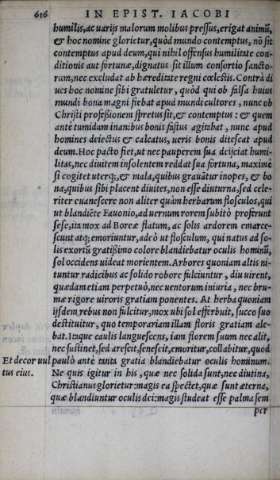 616 IN EPIST. IACOBI
humilis, ac uarijs malorum molibus pressus, erigat animũ,
& hoc nomine glorietur, quòd mundo contemptus, nõ sit
contemptus apud deum, qui nihil offensus humilitate con-
ditionis aut fortunæ, dignatus sit illum consortio sancto-
rum, nec excludat ab hæreditate regni cœlestis. Contrà di
ues hoc nomine sibi gratuletur, quòd qui ob falsa huius
mundi bona magni fiebat apud mundi cultores, nunc ob
Christi professionem spretus sit, & contemptus: & quem
antè tumidam inanibus bonis fastus agitabat, nunc apud
homines deiectus & calcatus, ueris bonis ditescat apud
deum. Hoc pacto fiet, ut nec pauperem sua deijciat humi-
litas, nec diuitem insolentem reddat sua fortuna, maximè
si cogitet uterq;, & mala, quibus grauãtur inopes, & bo
na, quibus sibi placent diuites, non esse diuturna, sed cele-
riter euanescere non aliter quàm herbarum flosculos, qui
ut blandiẽte Fauonio, ad uernum rorem subitò proferunt
sese, ita mox ad Boreæ flatum, ac solis ardorem emarce-
scunt atq; emoriuntur, adeò ut flosculum, qui natus ad so-
lis exortũ gratissimo colore blandiebatur oculis hominũ,
sol occidens uideat morientem. Arbores quoniam altis ni-
tuntur radicibus ac solido robore fulciuntur, diu uirent,
quædam etiam perpetuò, nec uentorum iniuria, nec bru-
mæ rigore uiroris gratiam ponentes. At herba quoniam
ijsdem rebus non fulcitur, mox ubi sol efferbuit, succo suo
destituitur, quo temporariam illam floris gratiam ale-
bat. Itaque caulis languescens, iam florem suum nec alit,
nec sustinet, sed arescit, senescit, emoritur, collabitur, quod
Et decor uul paulò antè tanta gratia blandiebatur oculis hominum.
tus eius. Ne quis igitur in his, quæ nec solida sunt, nec diutina,
Christianus glorietur: magis ea spectet, quæ sunt æterna,
quæ blandiuntur oculis dei: magis studeat esse palma sem
per